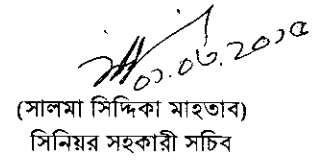 ০১.০৬.২০১৫
(সালমা সিদ্দিকা মাহতাব)
সিনিয়র সহকারী সচিব